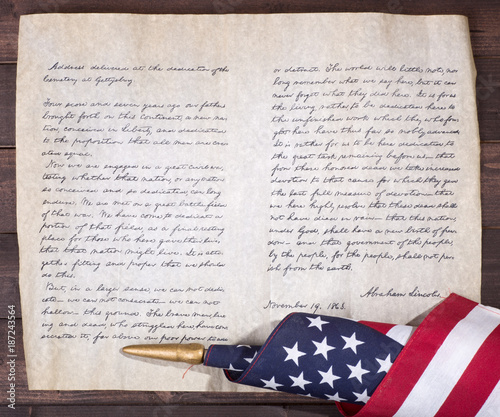 Address delivered at the dedication of the
Cemetery at Gettysburg.
Four score and seven years ago our fathers
brought forth on this continent, a new na-
tion, conceived in Liberty, and dedicated
to the proposition that all men are cre-
ated equal.
Now we are engaged in a great civil war,
testing whether that nation, or any nation
so conceived and so dedicated, can long
endure. We are met on a great battle field
of that war. We have come to dedicate a
portion of that field, as a final resting
place for those who here gave their lives,
that that nation might live. It is alto-
gether fitting and proper that we should
do this.
But, in a larger sense, we can not dedi-
cate— we can not consecrate— we can not
hallow— this ground. The brave men, liv-
ing and dead, who struggled here, have con-
secrated it, far above our poor power to add
or detract. The world will little note, nor
long remember what we say here, but it can
never forget what they did here. It is for us
the living, rather, to be dedicated here to
the unfinished work which they who fou-
ght here have thus far so nobly advanced.
It is rather for us to be here dedicated to
the great task remaining before us— that
from these honored dead we take increased
devotion to that cause for which they gave
the last full measure of devotion— that
we here highly resolve that these dead shall
not have died in vain— that this nation,
under God, shall have a new birth of free-
dom— and that government of the people,
by the people, for the people, shall not per-
ish from the earth.
Abraham Lincoln.
November 19, 1863.
187243564